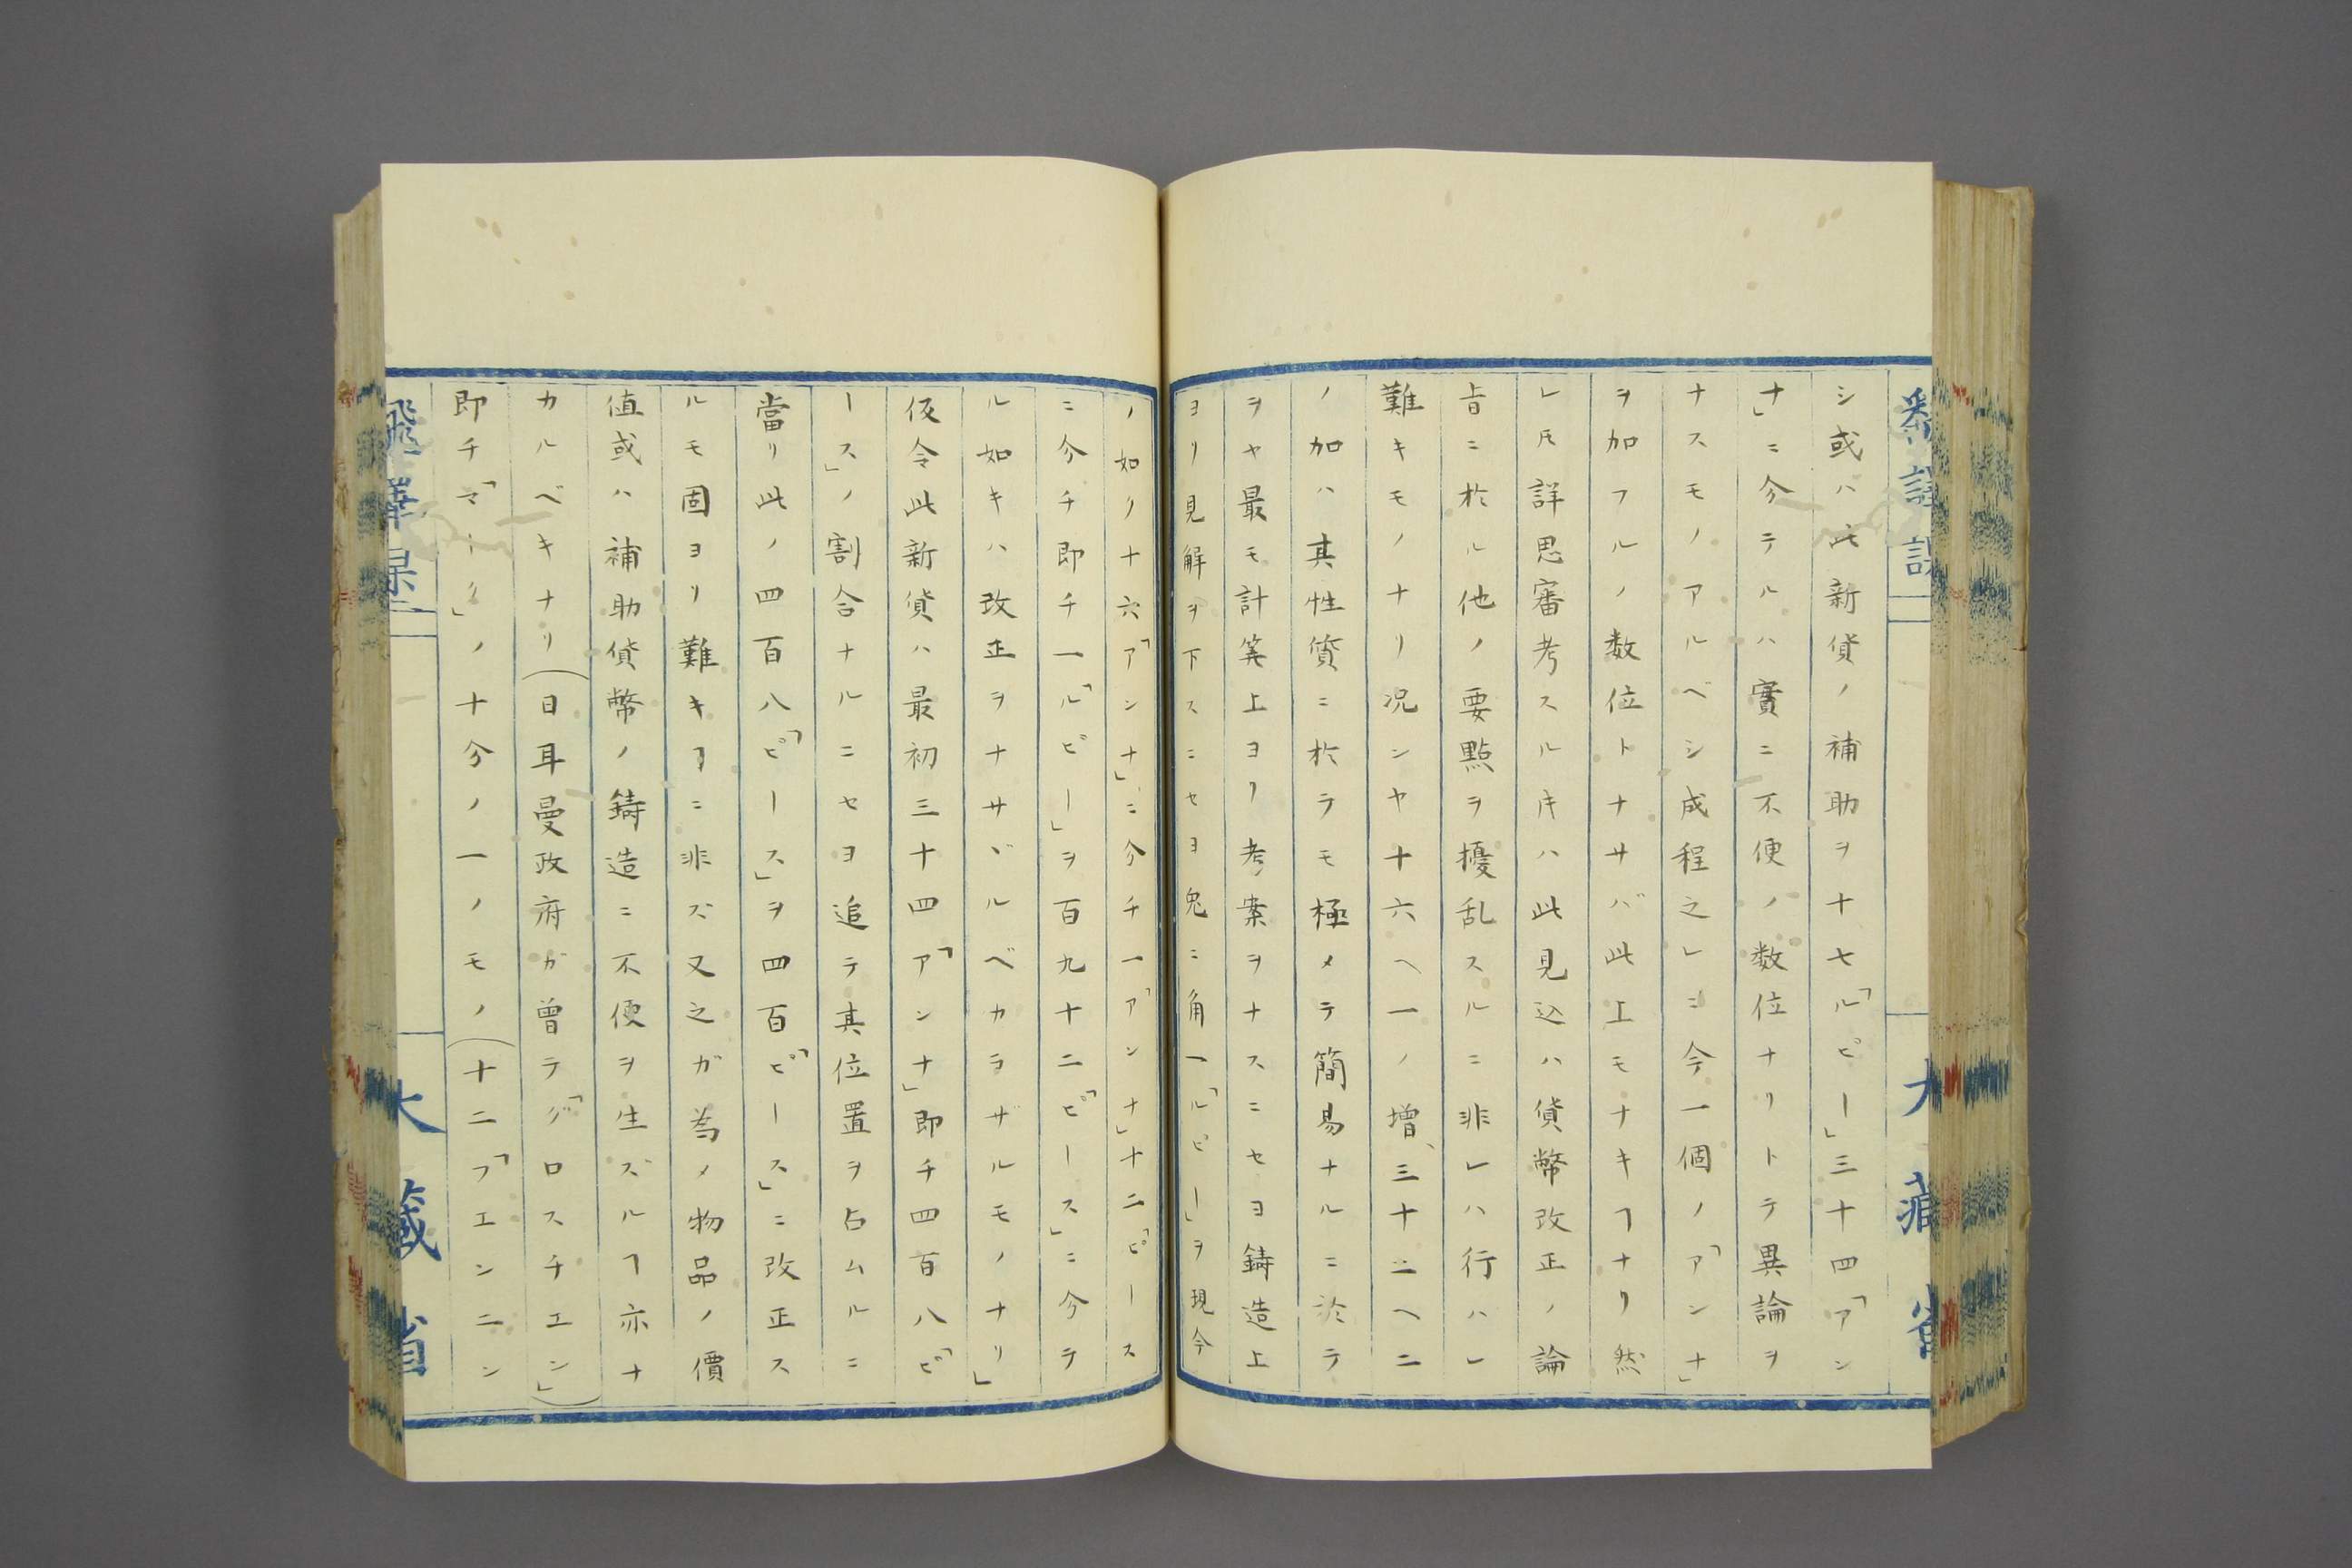 シ或ハ此新貨ノ補助ヲ十七「ルピー」三十四「アン
ナ」ニ分テルハ實ニ不便ノ数位ナリトテ異論ヲ
ナスモノアルベシ成程之レニ今一個ノ「アンナ」
ヲ加フルノ数位トナサバ此上モナキヿナリ然
レ𪜈詳思審考スル𪜈ハ此見込ハ貨幣改正ノ論
旨ニ於ル他ノ要點ヲ擾乱スルニ非レハ行ハレ
難キモノナリ况ンヤ十六ヘ一ノ増、三十二ヘ二
ノ加ハ其性質ニ於ラモ極メテ簡易ナルニ於テ
ヲヤ最モ計筭上ヨリ考案ヲナスニセヨ鋳造上
ヨリ見解ヲ下スニセヨ兔ニ角一「ルピー」ヲ現今
ノ如ク十六「アンナ」ニ分チ一「アンナ」十二「ピース
ニ分チ即チ一「ルピー」ヲ百九十二「ピース」ニ分テ
ル如キハ改正ヲナサヾルベカラザルモノナリ」
仮令此新貨ハ最初三十四「アンナ」即チ四百八「ピ
ース」ノ割合ナルニセヨ追テ其位置ヲ占ムルニ
當リ此ノ四百八「ピース」ヲ四百「ピース」ニ改正ス
ルモ固ヨリ難キヿニ非ズ又之ガ為メ物品ノ價
值或ハ補助貨幣ノ鋳造ニ不便ヲ生ズルヿ亦ナ
カルベキナリ(日耳曼政府ガ曽テ「グロスチエン」)
即チ「マーク」ノ十分ノ一ノモノ(十二「フエンニン
大藏省
大藏省